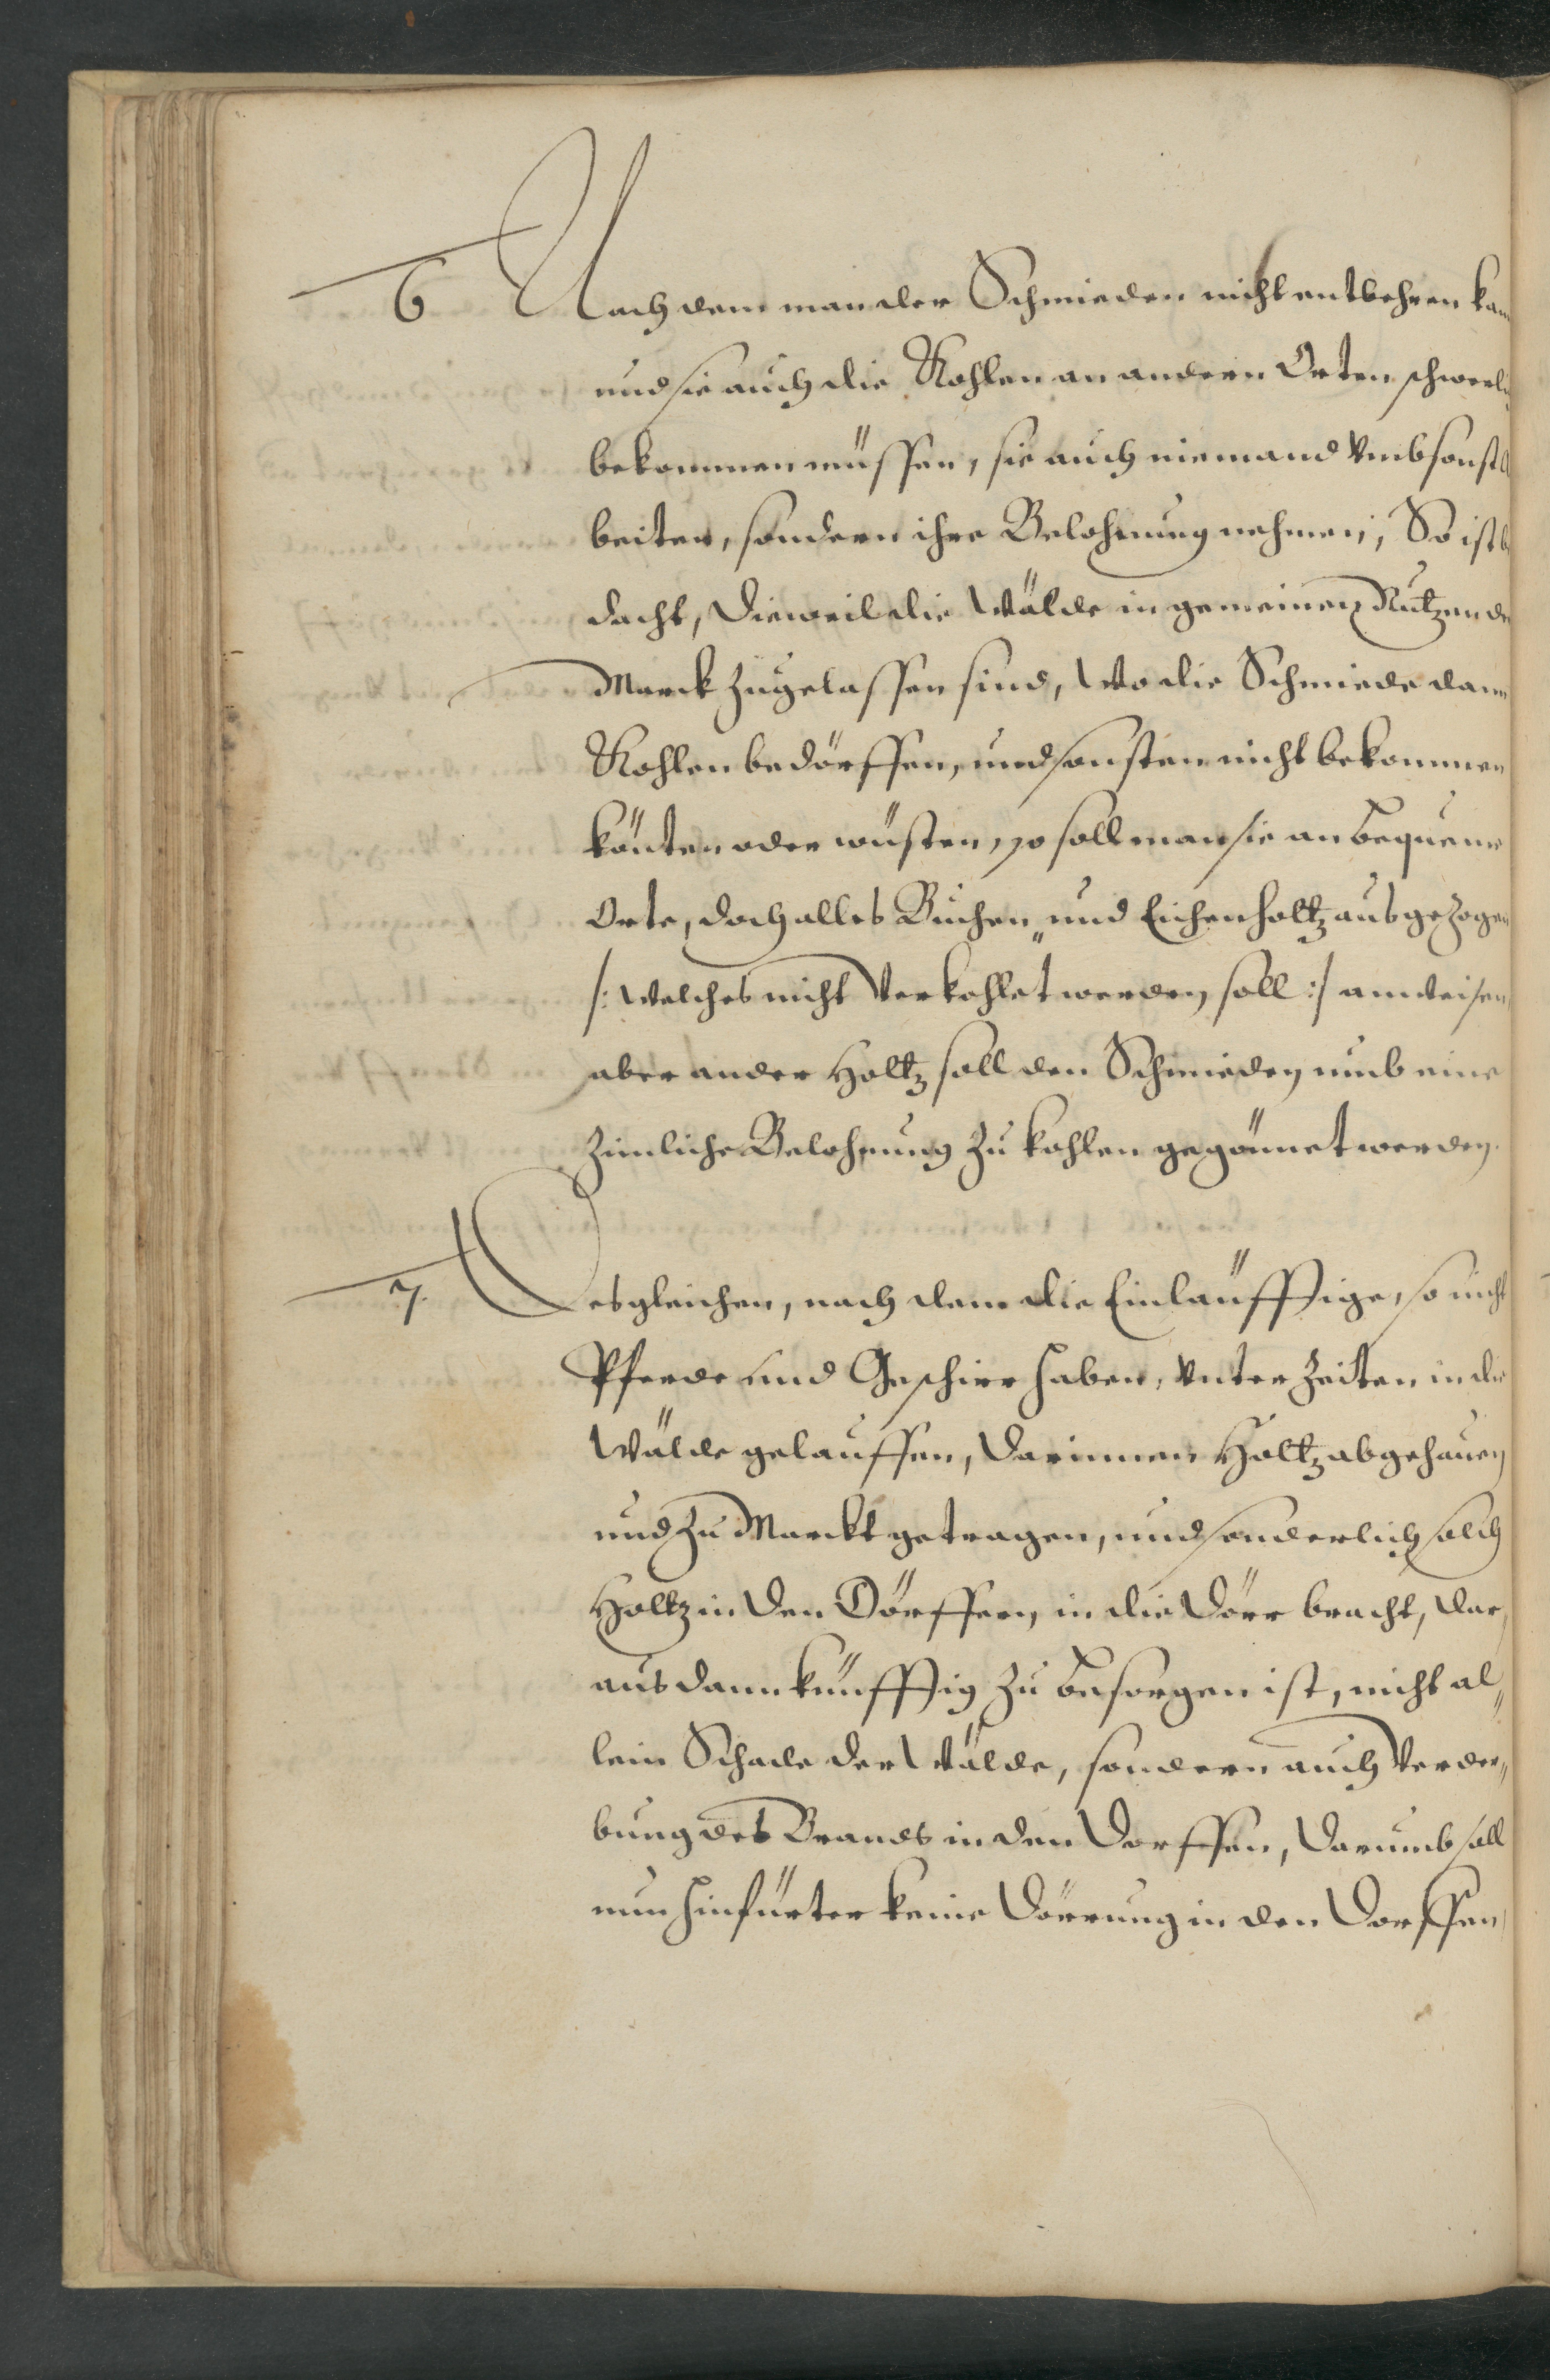 6 Nach dem man der Schmieden nicht entbehren kan
und sie auch die Kohlen an andern Orten schwerli
bekommen müssen, sie auch niemand vmbsonst
beiten, sondern ihre Belohnung nehmen, So ist b
dacht, dieweil die Wälde in gemeinen Nutzen de
Marck zugelassen sind, Wo die Schmiede dann
Kohlen bedörffen, und sonsten nicht bekommen
könten oder wüsten, so soll man sie an beqveme
Orte, doch alles Buchen„ und Eichenholtz ausgezogen
/: welches nicht verkohlet werden soll :/ anweisen,
aber ander Holtz soll den Schmieden umb eine
zimliche Belohnung zu kohlen gegönnet werden.
7. Desgleichen, nach dem die Einläufftige, so nicht
Pferde und Geschirr haben, vnter Zeiten in die
Wälde gelauffen, darinnen Holtz abgehauen
und zu Marckt getragen, und sonderlich solch
Holtz in den Dörffern, in die Dörr bracht, dar„
aus dann künfftig zu besorgen ist, nicht al„
lein Schade der Wälde, sondern auch Verder„
bung des Brands in den Dorffen, darumb soll
nun hinfürter keine Dörrung in den Dorffen,